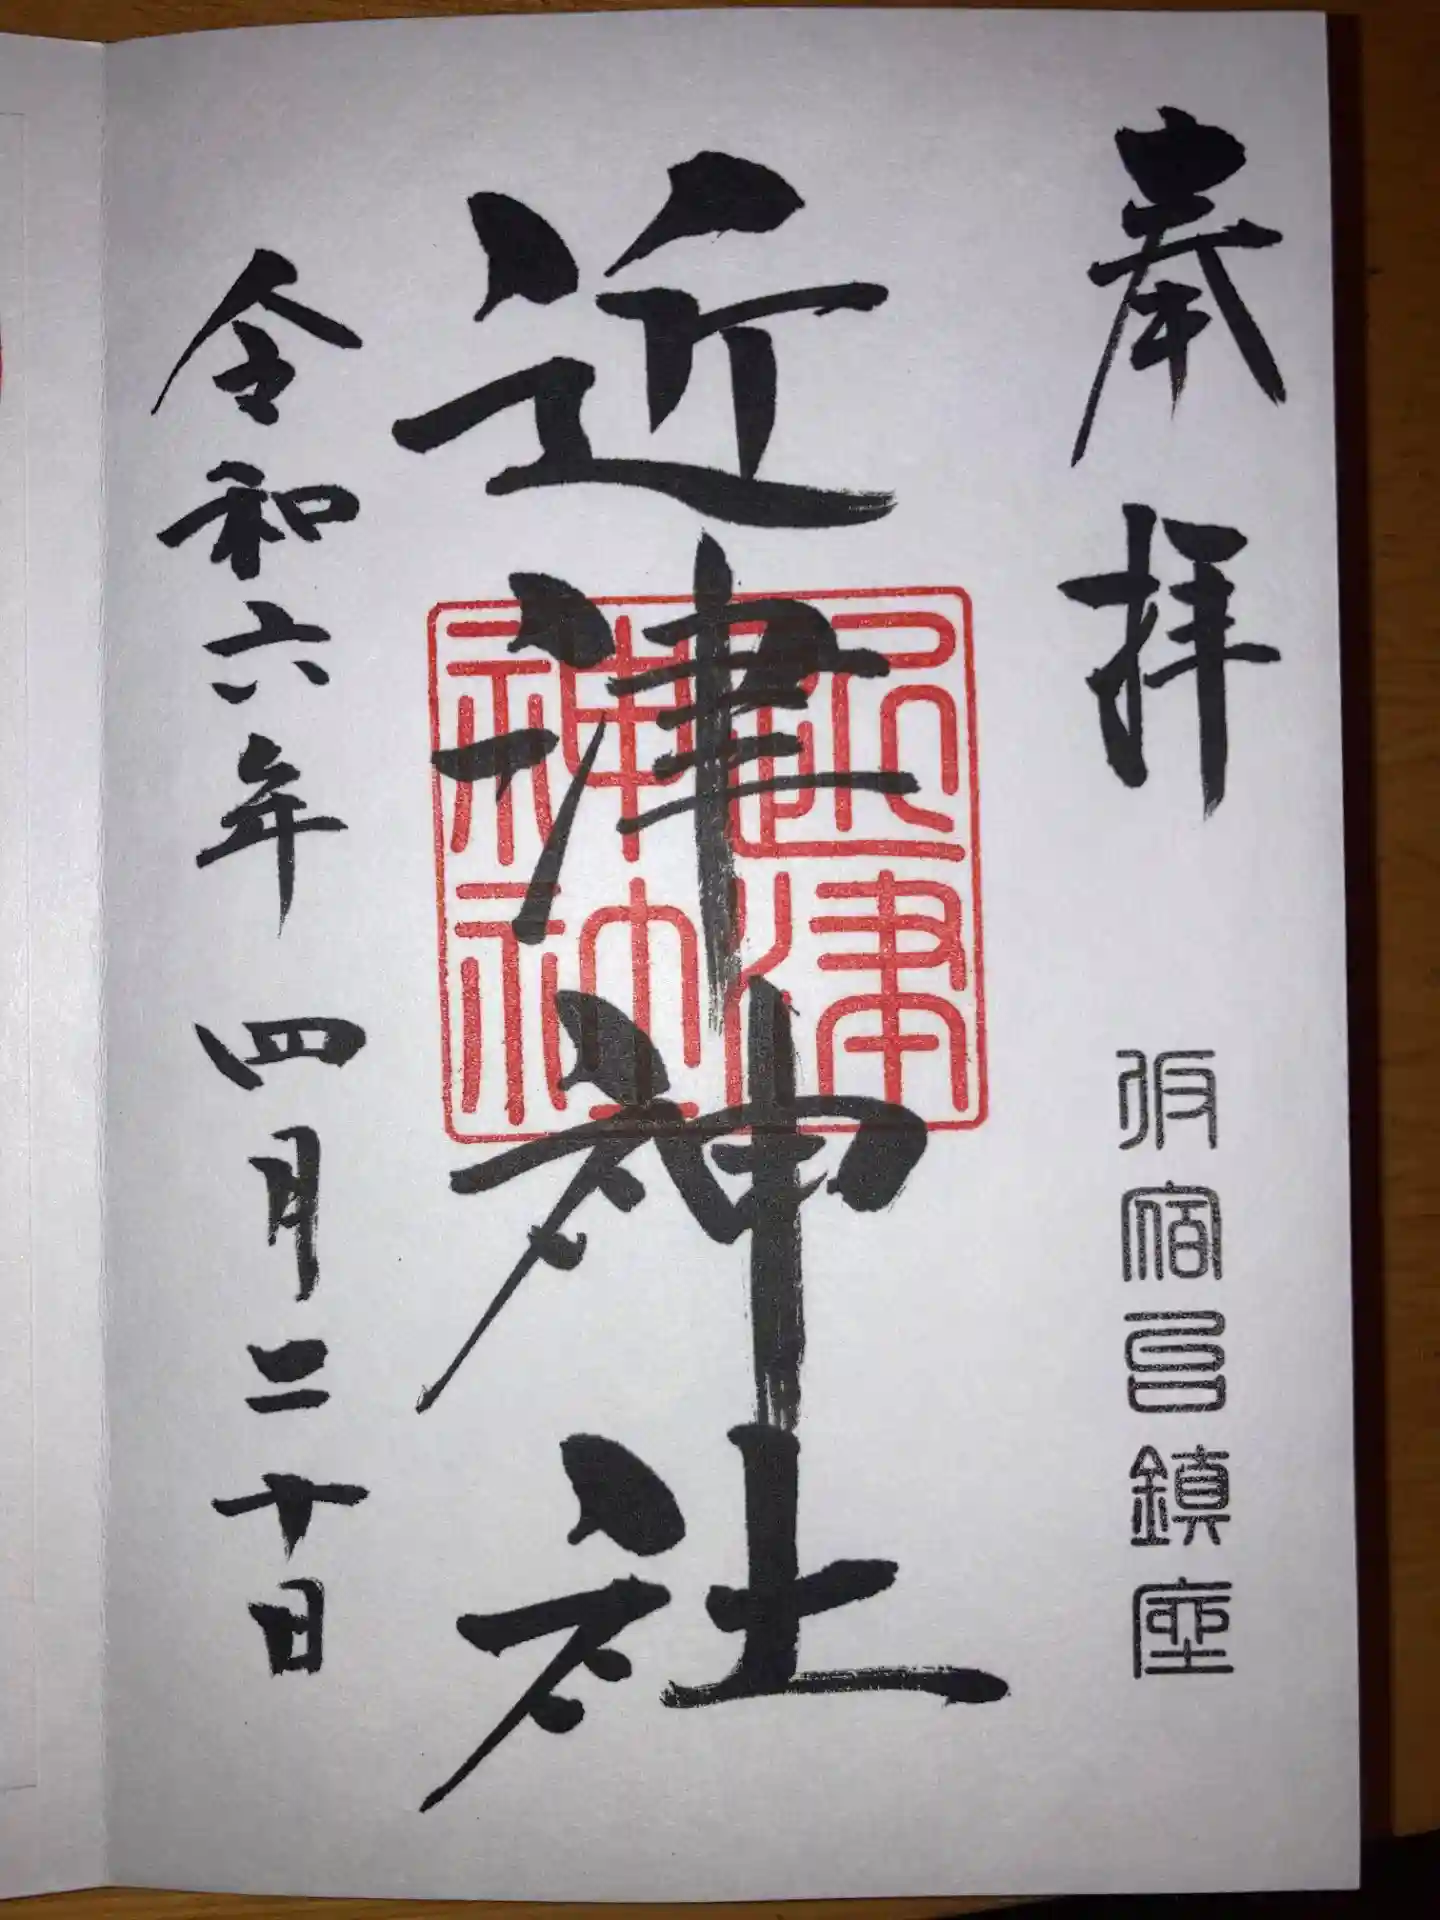 奉拝
仮宿邑鎮座
近津神社
近津神社
令和六年四月二十日